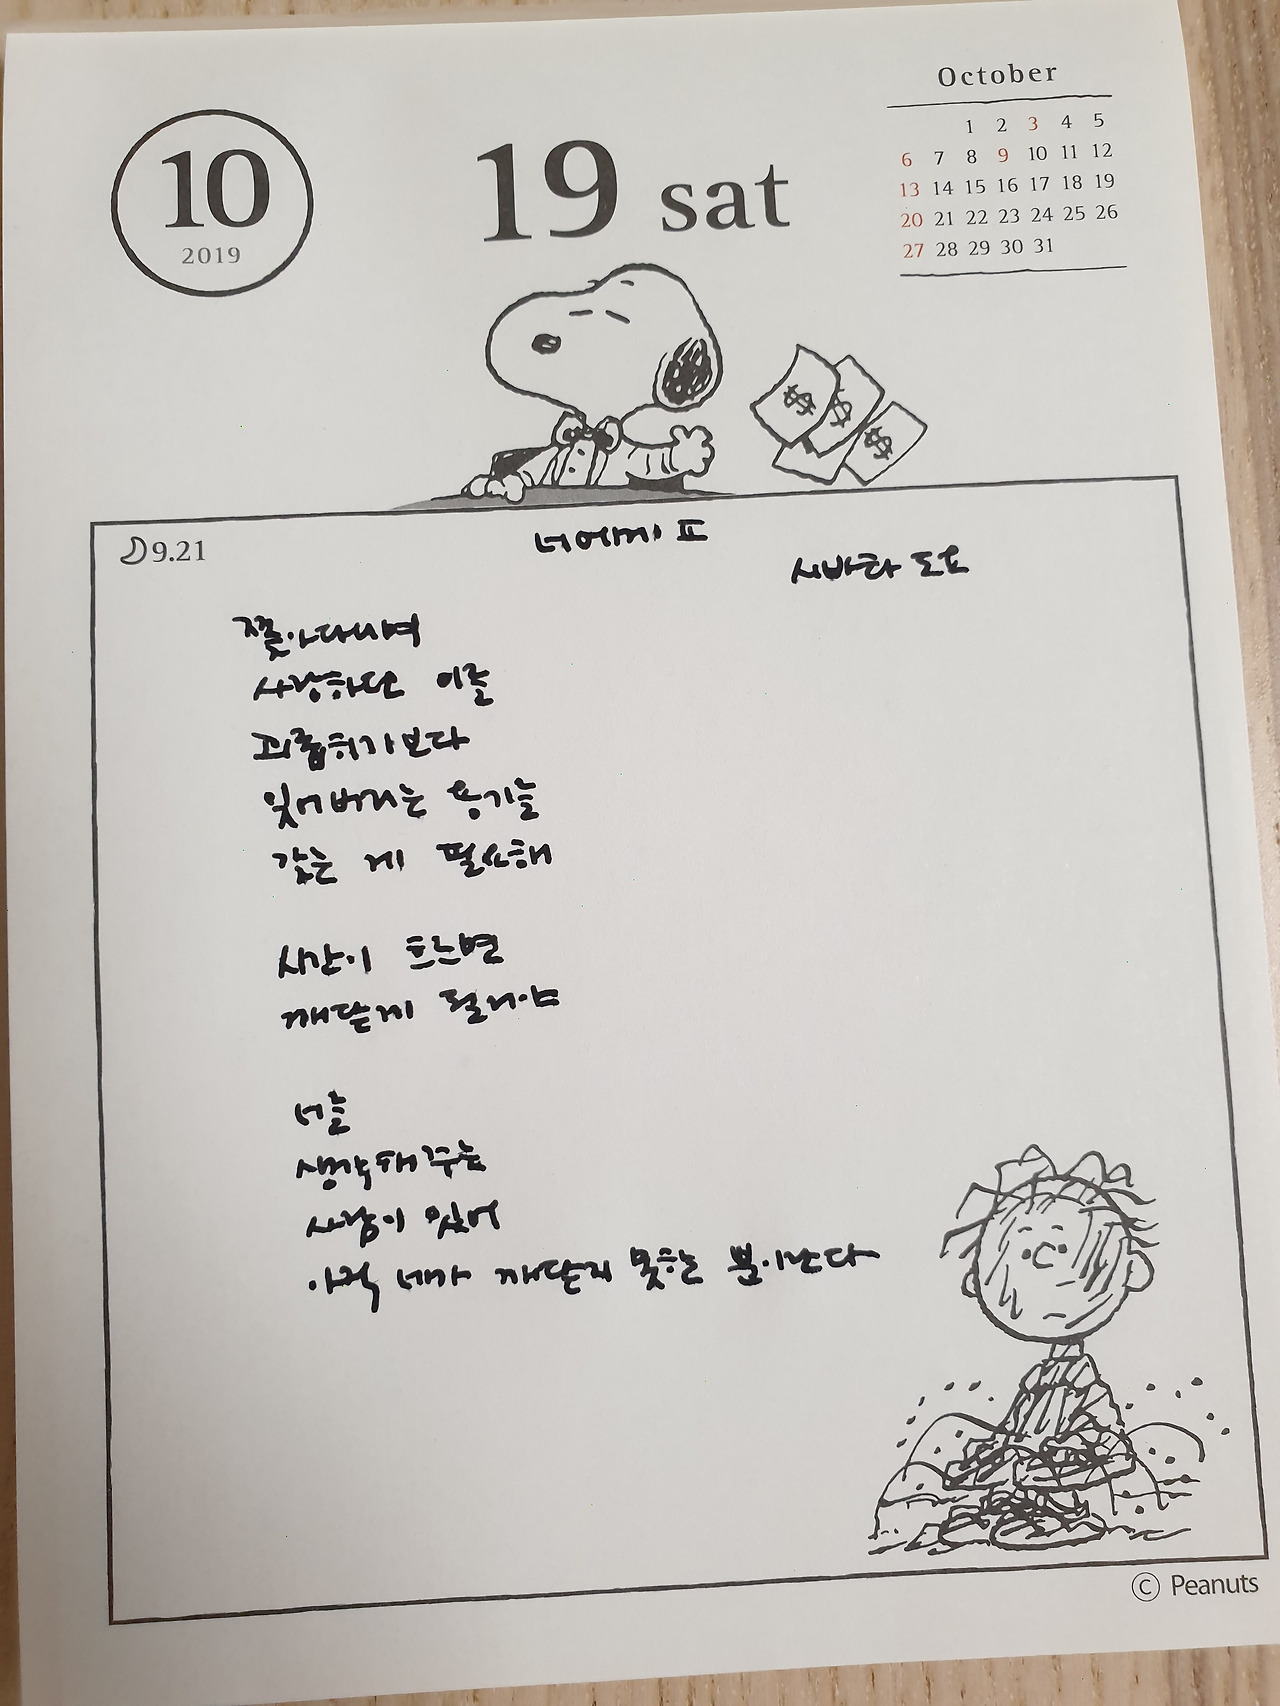 October
1 2 3 4 5
6 7 8 9 10 11 12
13 14 15 16 17 18 19
20 21 22 23 24 25 26
27 28 29 30 31
10
2019
19 sat
$ $ $
9.21
너에게 II
시바타 도요
쫓아다니며
사랑하던 이를
괴롭히기보다
잊어버리는 용기를
갖는 게 필요해
시간이 흐르면
깨닫게 될거야
너를
생각해주는
사람이 있어
아직 네가 깨닫지 못하는 뿐이란다
© Peanuts